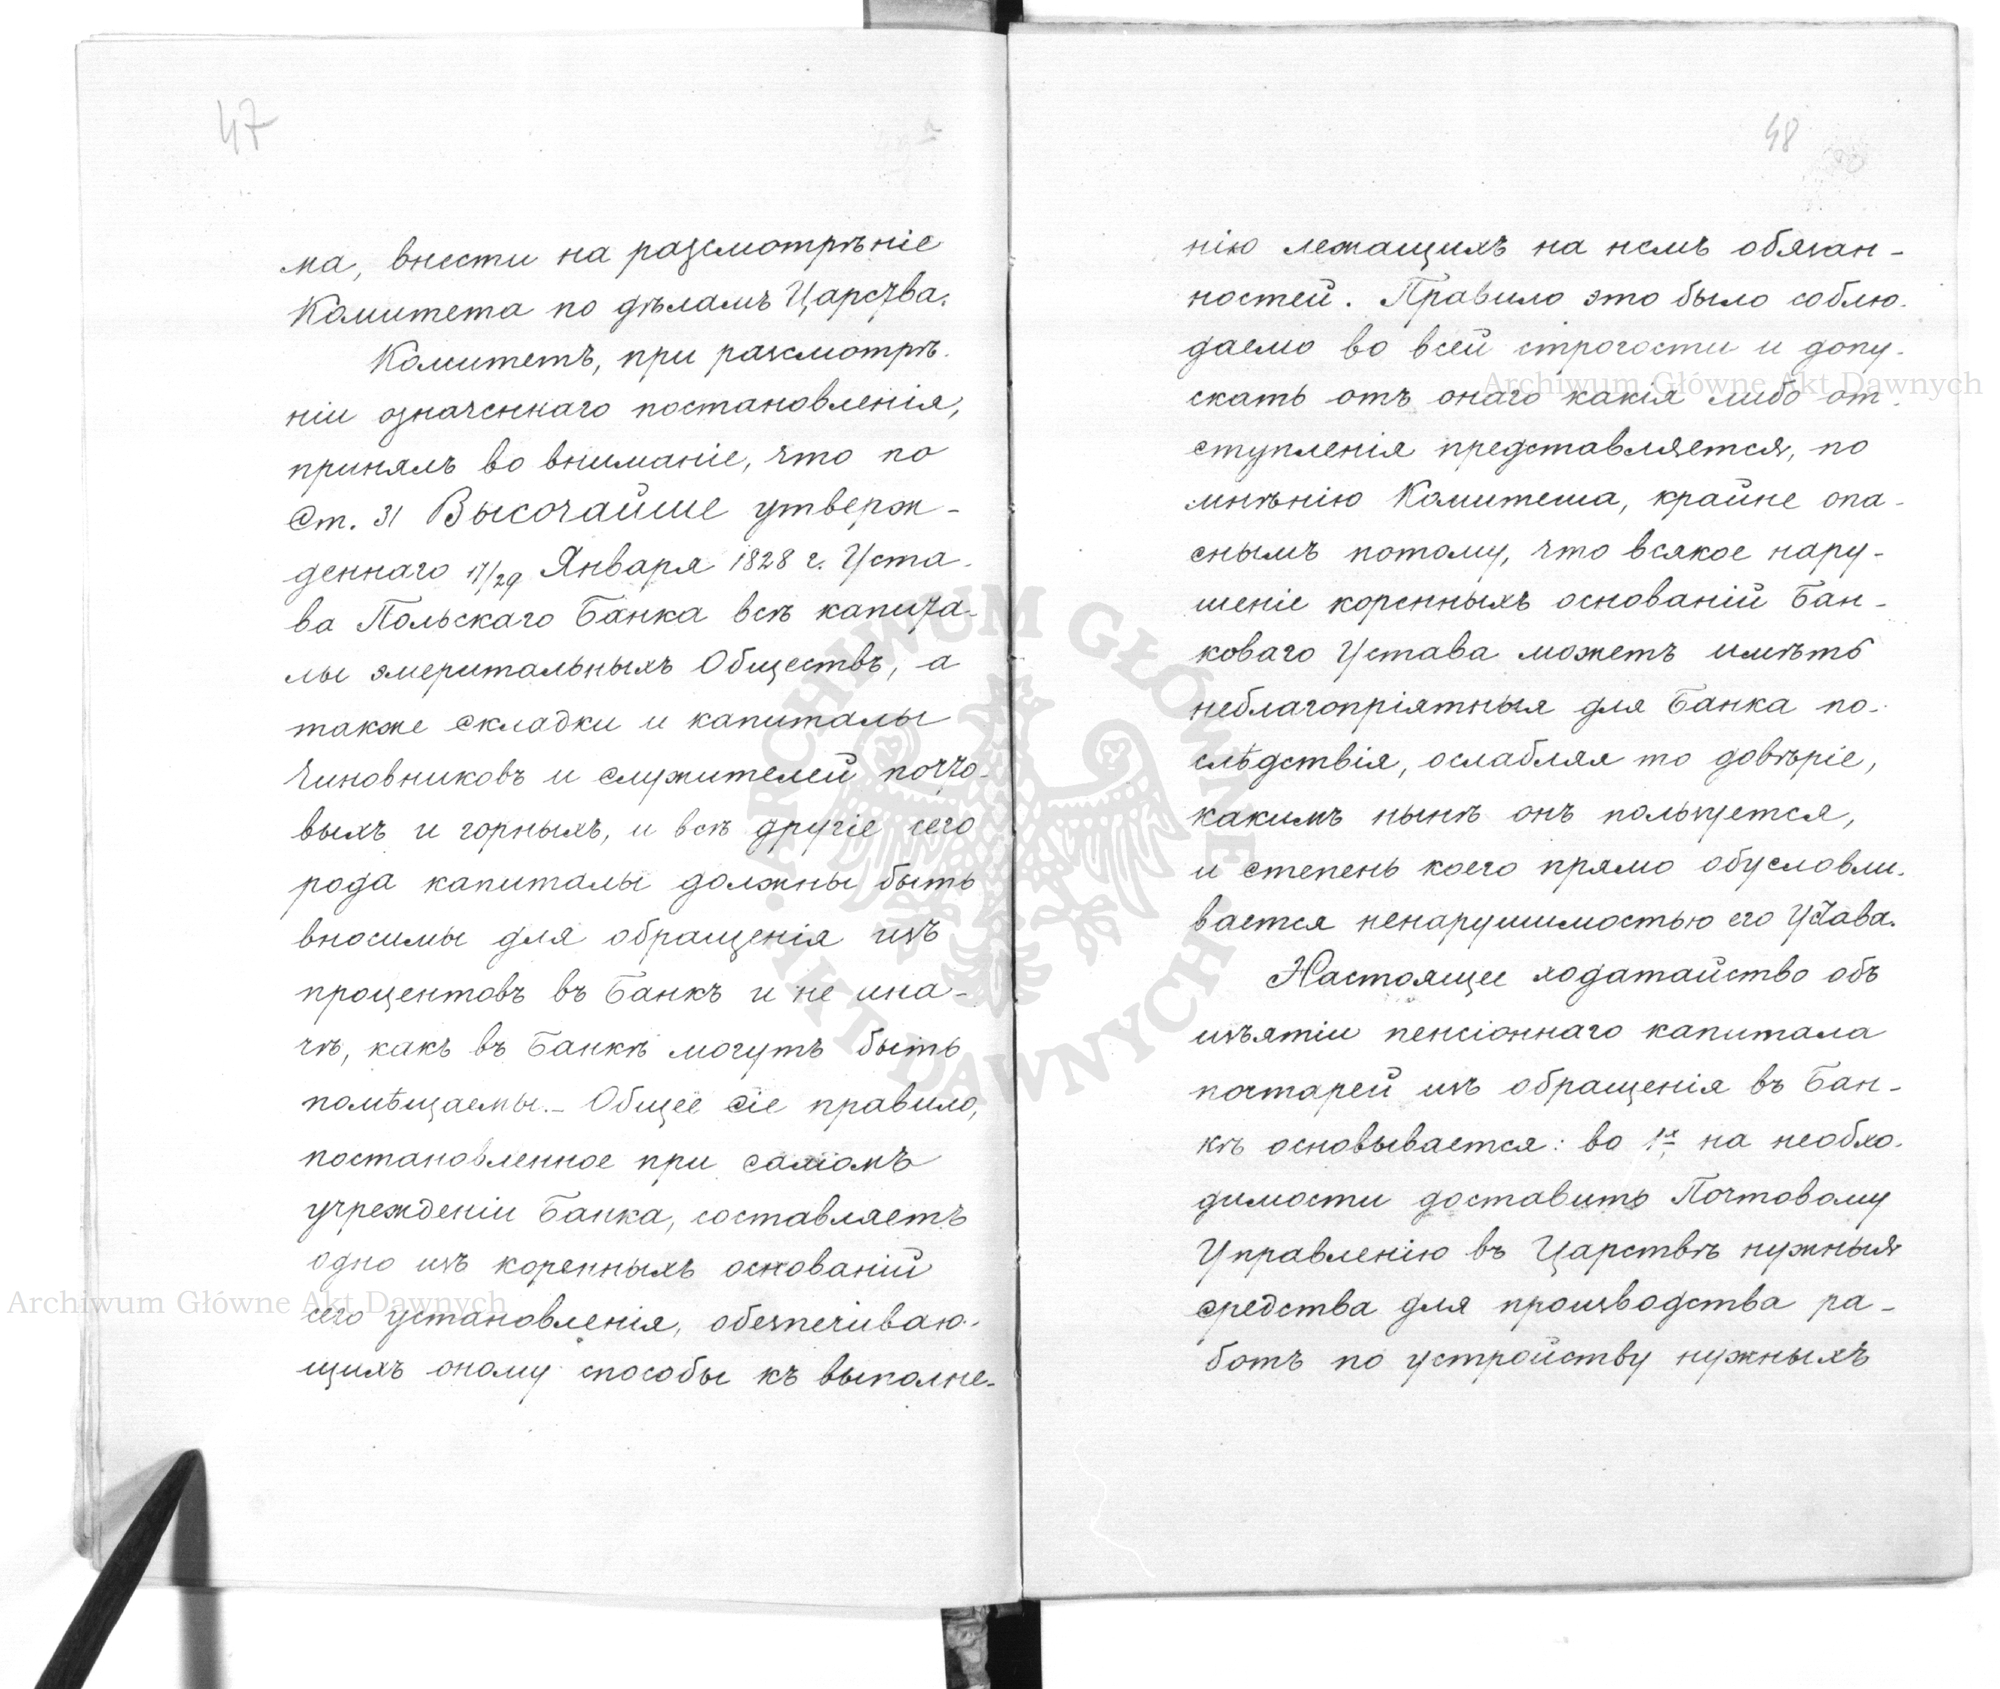 47
ма, внести на разсмотрѣніе
Комитета по дѣламъ Царства.
Комитетъ, при разсмотрѣ-
ніи означеннаго постановленія,
принялъ во вниманіе, что по
Ст. 31 Высочайше утверж-
деннаго 17/29 Января 1828 г. Уста-
ва Польскаго Банка всѣ капита-
лы эмеритальныхъ Обществъ, а
также складки и капиталы
чиновниковъ и служителей почто-
выхъ и горныхъ, и всѣ другіе сего
рода капиталы должны быть
вносимы для обращенія изъ
процентовъ въ Банкъ и не ина-
чѣ, какъ въ Банкѣ могутъ быть
помѣщаемы. – Общее сіе правило,
постановленное при самомъ
учрежденіи Банка, составляетъ
одно изъ коренныхъ основаній
сего установленія, обезпечиваю-
щихъ оному способы къ выполне-
48
нію лежащихъ на немъ обязан-
ностей. Правило это было соблю-
даемо во всей строгости и допу-
скать отъ онаго какія либо от-
ступленія представляется, по
мнѣнію Комитета, крайне опа-
снымъ потому, что всякое нару-
шеніе коренныхъ основаній Бан-
коваго Устава можетъ имѣть
неблагопріятныя для Банка по-
слѣдствія, ослабляя то довѣріе,
какимъ нынѣ онъ пользуется,
и степень коего прямо обусловли-
вается ненарушимостью его Устава.
Настоящее ходатайство объ
изъятіи пенсіоннаго капитала
почтарей изъ обращенія въ Бан-
кѣ основывается: во 1х, на необхо-
димости доставить Почтовому
Управленію въ Царствѣ нужныя
средства для производства ра-
ботъ по устройству нужныхъ
Archiwum Główne Akt Dawnych
Archiwum Główne Akt Dawnych
ARCHIWUM GŁÓWNE
AKT DAWNYCH